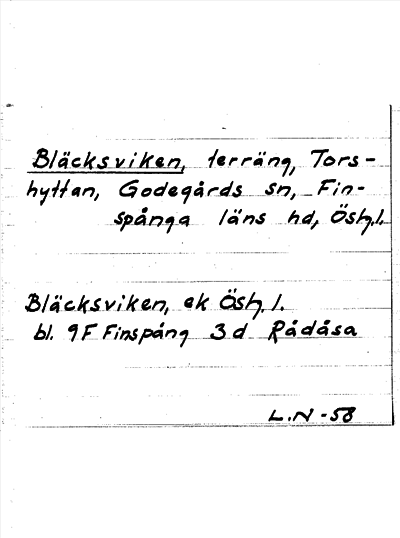 Bläcksviken, terräng, Tors-
hyttan, Godegårds sn, Fin-
spånga läns hd, Östg.l.
Bläcksviken, ek Östg.l.
bl. 9F Finspång 3d Rådåsa
L.N -58